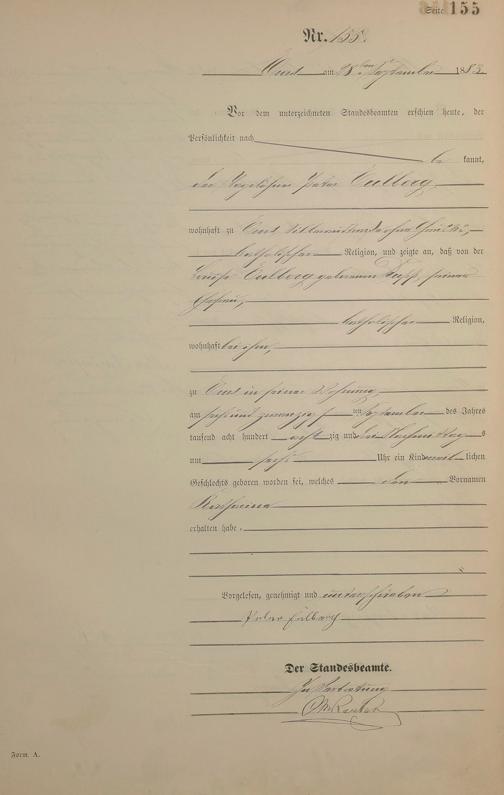 Seite 155
Nr. 155.
am 28ten September 1883.
Vor dem unterzeichneten Standesbeamten erschien heute, der
Persönlichkeit nach
be kannt,
der Peter Eulberg
wohnhaft zu
katholischer Religion, und zeigte an, daß von der
Eulberg geborenen seiner
Ehefrau,
katholischer Religion,
wohnhaft bei ihm,
zu in seiner Wohnung,
am sechs und zwanzigsten September des Jahres
tausend acht hundert acht zig und drei Nachmittag s
um sechs Uhr ein Kind weib lichen
Geschlechts geboren worden sei, welches den Vornamen
Katharina
erhalten habe.
Vorgelesen, genehmigt und unterschrieben
Peter Eulberg
Der Standesbeamte.
In Vertretung
Form. A.